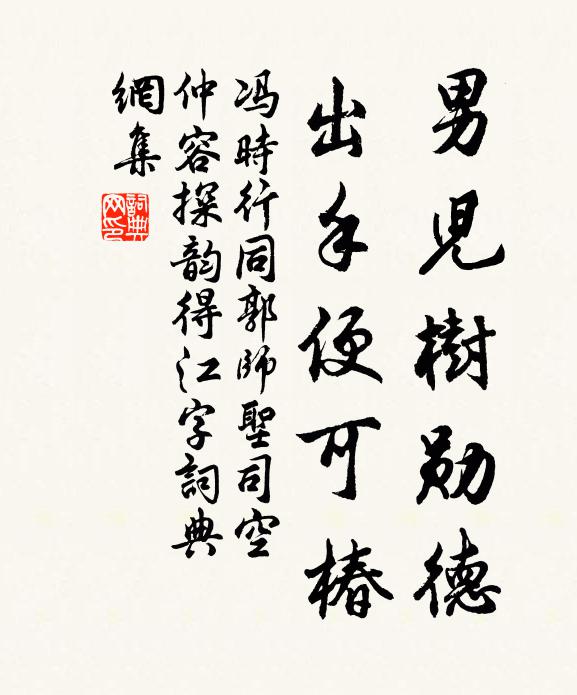 男児樹勋德
出手便可椿
冯時行同郭師聖司空
仲容探韵得江字詞典
網集
詞典网印